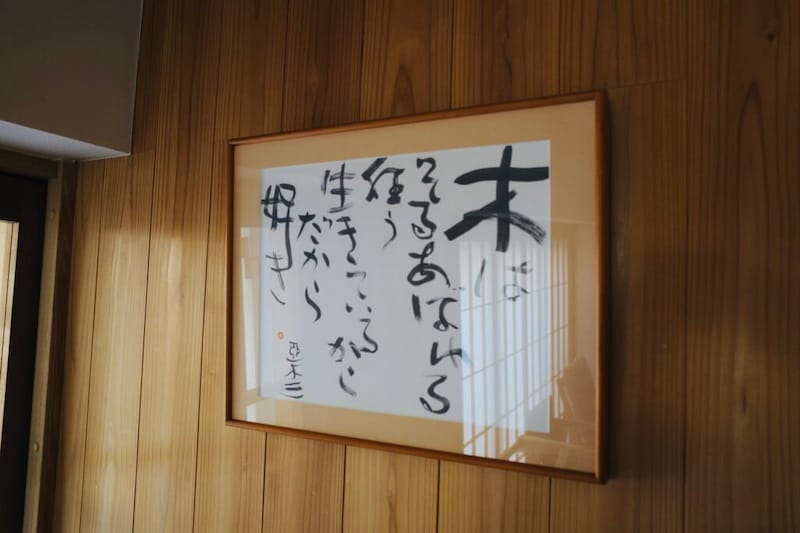 木は
そるあばれる
狂う
生きているから
だから
好き
亞木三